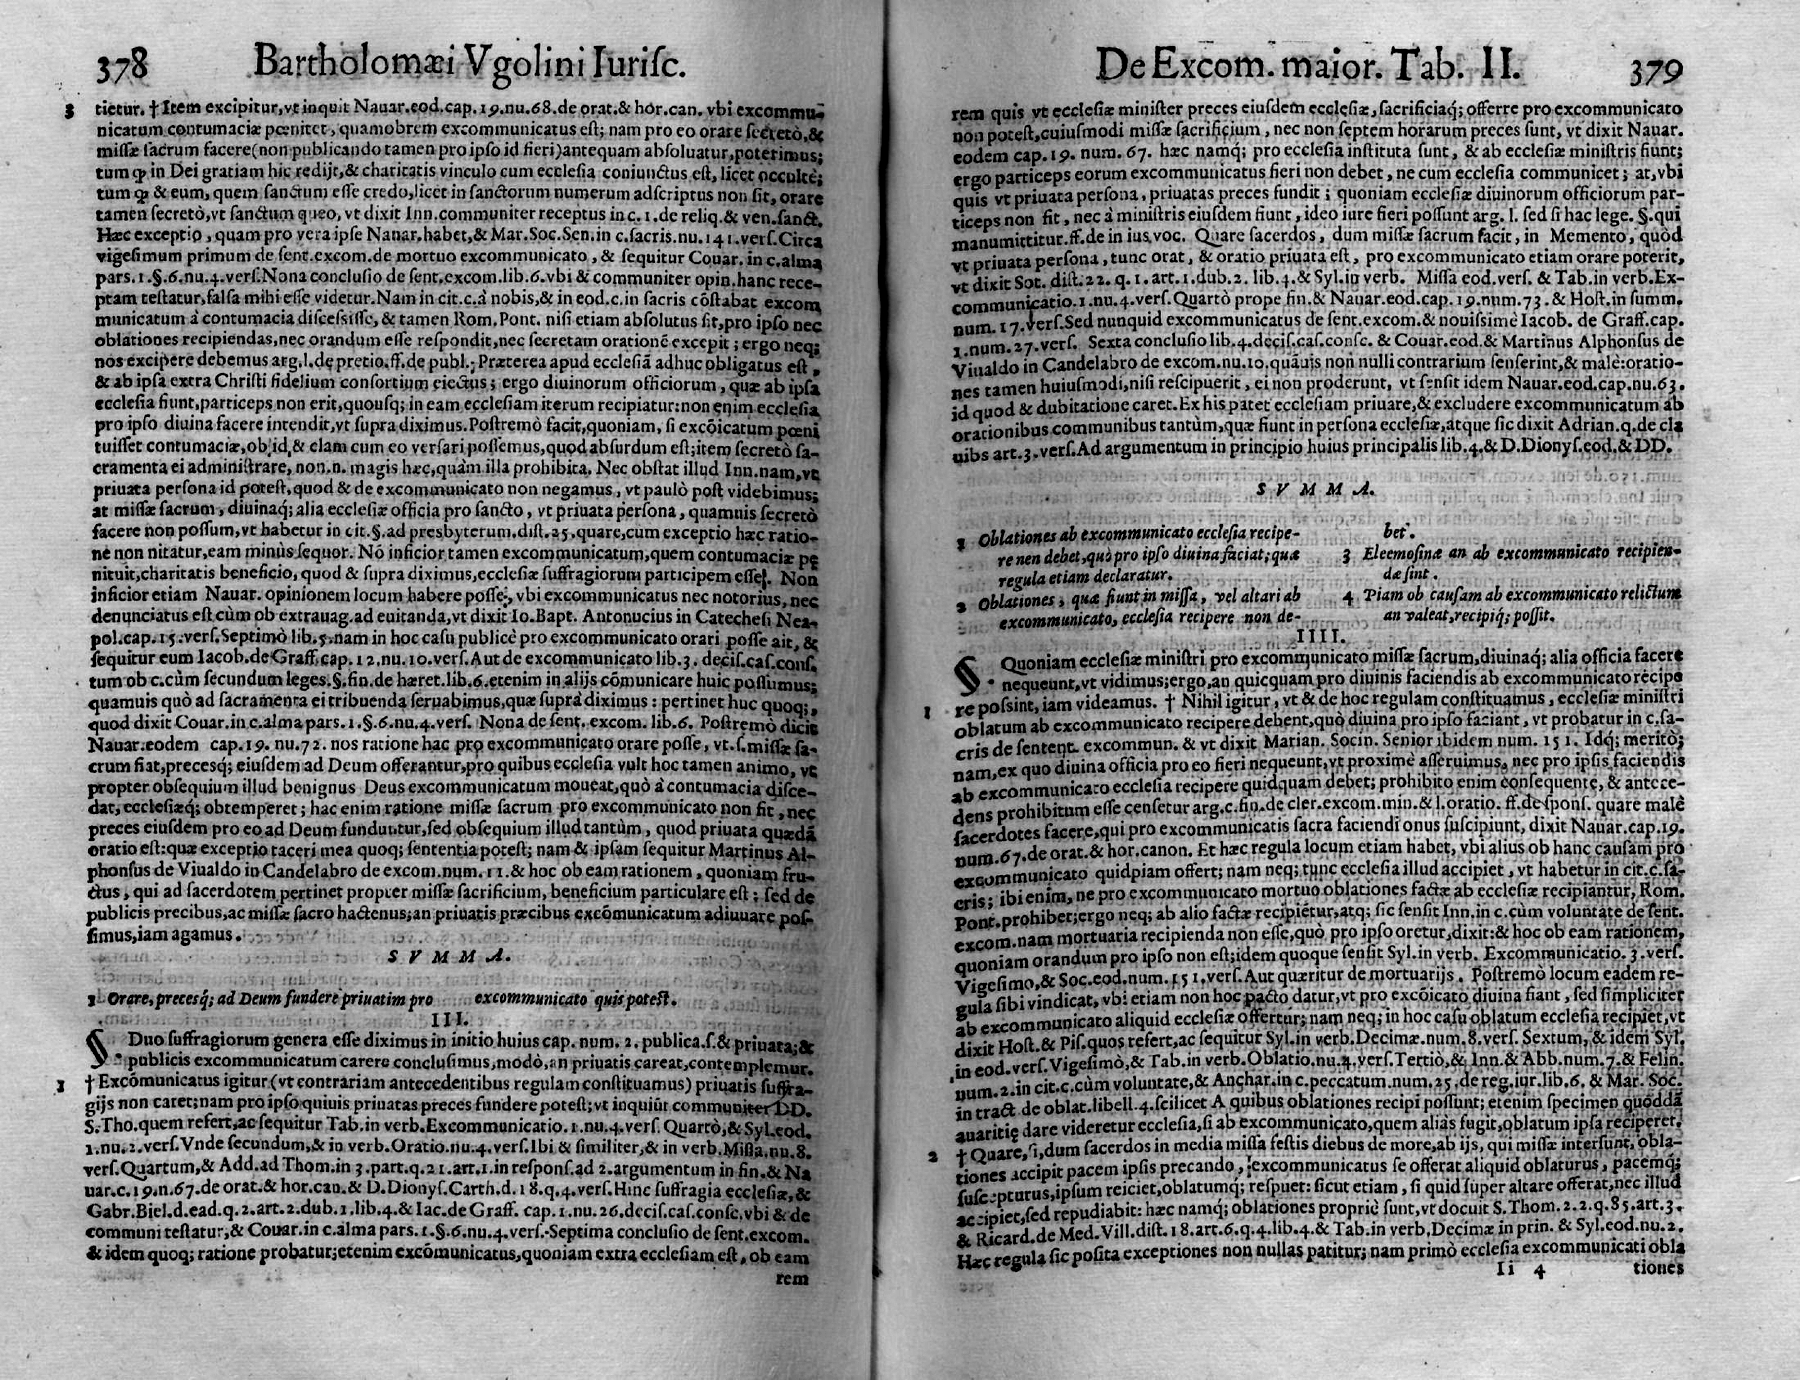 378 Bartholomæi Vgolini Iurisc.
3 tietur. † Item excipitur, vt inquit Nauar. eod. cap. 19. nu. 68. de orat. & hor. can. vbi excommu-
nicatum contumaciæ pœnitet, quamobrem excommunicatus est; nam pro eo orare secretò, &
missæ sacrum facere (non publicando tamen pro ipso id fieri) antequam absoluatur, poterimus;
tum ꝙ in Dei gratiam hic redijt, & charitatis vinculo cum ecclesia coniunctus est, licet occultè;
tum ꝙ & eum, quem sanctum esse credo, licet in sanctorum numerum adscriptus non sit, orare
tamen secretò, vt sanctum queo, vt dixit Inn. communiter receptus in c. 1. de reliq. & ven. sanct.
Hæc exceptio, quam pro vera ipse Nauar. habet, & Mar. Soc. Sen. in c. sacris. nu. 141. vers. Circa
vigesimum primum de sent. excom. de mortuo excommunicato, & sequitur Couar. in c. alma
pars. 1. §. 6. nu. 4. vers. Nona conclusio de sent. excom. lib. 6. vbi & communiter opin. hanc rece-
ptam testatur, falsa mihi esse videtur. Nam in cit. c. à nobis, & in eod. c. in sacris cõstabat excom
municatum à contumacia discessisse, & tamen Rom. Pont. nisi etiam absolutus sit, pro ipso nec
oblationes recipiendas, nec orandum esse respondit, nec secretam orationẽ excepit; ergo neq;
nos excipere debemus arg. l. de pretio. ff. de publ.; Præterea apud ecclesiã adhuc obligatus est,
& ab ipsa extra Christi fidelium consortium eiectus; ergo diuinorum officiorum, quæ ab ipsa
ecclesia fiunt, particeps non erit, quousq; in eam ecclesiam iterum recipiatur: non enim ecclesia
pro ipso diuina facere intendit, vt supra diximus. Postremò facit, quoniam, si excõicatum pœni
tuisset contumaciæ, ob id, & clam cum eo versari possemus, quod absurdum est; item secretò sa-
cramenta ei administrare, non. n. magis hæc, quàm illa prohibita. Nec obstat illud Inn. nam, vt
priuata persona id potest, quod & de excommunicato non negamus, vt paulò post videbimus;
at missæ sacrum, diuinaq́; alia ecclesiæ officia pro sancto, vt priuata persona, quamuis secretò
facere non possum, vt habetur in cit. §. ad presbyterum. dist. 25. quare, cum exceptio hæc ratio-
ne non nitatur, eam minùs sequor. Nõ inficior tamen excommunicatum, quem contumaciæ pę
nituit, charitatis beneficio, quod & supra diximus, ecclesiæ suffragiorum participem esse. Non
inficior etiam Nauar. opinionem locum habere posse, vbi excommunicatus nec notorius, nec
denunciatus est cùm ob extrauag. ad euitanda, vt dixit Io. Bapt. Antonucius in Catechesi Nea-
pol. cap. 15. vers. Septimò lib. 5. nam in hoc casu publicè pro excommunicato orari posse ait, &
sequitur eum Iacob. de Graff. cap. 12. nu. 10. vers. Aut de excommunicato lib. 3. decis. cas. cons.
tum ob c. cùm secundum leges. §. fin. de hæret. lib. 6. etenim in alijs cõmunicare huic possumus;
quamuis quò ad sacramenta ei tribuenda seruabimus, quæ suprà diximus: pertinet huc quoq;,
quod dixit Couar. in c. alma pars. 1. §. 6. nu. 4. vers. Nona de sent. excom. lib. 6. Postremò dicit
Nauar. eodem cap. 19. nu. 72. nos ratione hac pro excommunicato orare posse, vt. s. missæ sa-
crum fiat, precesq; eiusdem ad Deum offerantur, pro quibus ecclesia vult hoc tamen animo, vt
propter obsequium illud benignus Deus excommunicatum moueat, quò à contumacia disce-
dat, ecclesiæq; obtemperet; hac enim ratione missæ sacrum pro excommunicato non fit, nec
preces eiusdem pro eo ad Deum funduntur, sed obsequium illud tantùm, quod priuata quædã
oratio est: quæ exceptio taceri mea quoq; sententia potest; nam & ipsam sequitur Martinus Al-
phonsus de Viualdo in Candelabro de excom. num. 11. & hoc ob eam rationem, quoniam fru-
ctus, qui ad sacerdotem pertinet propter missæ sacrificium, beneficium particulare est; sed de
publicis precibus, ac missæ sacro hactenus; an priuatis præcibus excõmunicatum adiuuare pos-
simus, iam agamus.
SVMMA.
1 Orare, precesq́; ad Deum fundere priuatim pro excommunicato quis potest.
III.
§. Duo suffragiorum genera esse diximus in initio huius cap. num. 2. publica. s. & priuata; &
publicis excommunicatum carere conclusimus, modò, an priuatis careat, contemplemur.
1 † Excõmunicatus igitur (vt contrariam antecedentibus regulam constituamus) priuatis suffra-
gijs non caret; nam pro ipso quiuis priuatas preces fundere potest; vt inquiũt communiter DD.
S. Tho. quem refert, ac sequitur Tab. in verb. Excommunicatio. 1. nu. 4. vers. Quartò, & Syl. eod.
1. nu. 2. vers. Vnde secundum, & in verb. Oratio. nu. 4. vers. Ibi & similiter, & in verb. Missa. nu. 8.
vers. Quartum, & Add. ad Thom. in 3. part. q. 21. art. 1. in respons. ad 2. argumentum in fin. & Na
uar. c. 19. n. 67. de orat. & hor. can. & D. Dionys. Carth. d. 18. q. 4. vers. Hinc suffragia ecclesiæ, &
Gabr. Biel. d. ead. q. 2. art. 2. dub. 1. lib. 4. & Iac. de Graff. cap. 1. nu. 26. decis. cas. consc. vbi & de
communi testatur, & Couar. in c. alma pars. 1. §. 6. nu. 4. vers. Septima conclusio de sent. excom.
& idem quoq; ratione probatur; etenim excõmunicatus, quoniam extra ecclesiam est, ob eam
rem
De Excom. maior. Tab. II. 379
rem quis vt ecclesiæ minister preces eiusdem ecclesiæ, sacrificiaq́; offerre pro excommunicato
non potest, cuiusmodi missæ sacrificium, nec non septem horarum preces sunt, vt dixit Nauar.
eodem cap. 19. num. 67. hæc namq́; pro ecclesia instituta sunt, & ab ecclesiæ ministris fiunt;
ergo particeps eorum excommunicatus fieri non debet, ne cum ecclesia communicet; at, vbi
quis vt priuata persona, priuatas preces fundit; quoniam ecclesiæ diuinorum officiorum par-
ticeps non fit, nec à ministris eiusdem fiunt, ideo iure fieri possunt arg. l. sed si hac lege. §. qui
manumittitur. ff. de in ius voc. Quare sacerdos, dum missæ sacrum facit, in Memento, quòd
vt priuata persona, tunc orat, & oratio priuata est, pro excommunicato etiam orare poterit,
vt dixit Sot. dist. 22. q. 1. art. 1. dub. 2. lib. 4. & Syl. in verb. Missa eod. vers. & Tab. in verb. Ex-
communicatio. 1. nu. 4. vers. Quartò prope fin. & Nauar. eod. cap. 19. num. 73. & Host. in summ.
num. 17. vers. Sed nunquid excommunicatus de sent. excom. & nouissimè Iacob. de Graff. cap.
1. num. 27. vers. Sexta conclusio lib. 4. decis. cas. consc. & Couar. eod. & Martinus Alphonsus de
Viualdo in Candelabro de excom. nu. 10. quãuis non nulli contrarium senserint, & malè: oratio-
nes tamen huiusmodi, nisi rescipuerit, ei non proderunt, vt sensit idem Nauar. eod. cap. nu. 63.
id quod & dubitatione caret. Ex his patet ecclesiam priuare, & excludere excommunicatum ab
orationibus communibus tantùm, quæ fiunt in persona ecclesiæ, atque sic dixit Adrian. q. de cla
uibs art. 3. vers. Ad argumentum in principio huius principalis lib. 4. & D. Dionys. eod. & DD.
SVMMA.
1 Oblationes ab excommunicato ecclesia recipe-
re non debet, quò pro ipso diuina faciat; quæ
regula etiam declaratur.
2 Oblationes, quæ fiunt in missa, vel altari ab
excommunicato, ecclesia recipere non de-
bet.
3 Eleemosinæ an ab excommunicato recipien-
dæ sint.
4 Piam ob causam ab excommunicato relictum
an valeat, recipiq́; possit.
IIII.
§. Quoniam ecclesiæ ministri pro excommunicato missæ sacrum, diuinaq́; alia officia facere
nequeunt, vt vidimus; ergo, an quicquam pro diuinis faciendis ab excommunicato recipe
1 re possint, iam videamus. † Nihil igitur, vt & de hoc regulam constituamus, ecclesiæ ministri
oblatum ab excommunicato recipere debent, quò diuina pro ipso faciant, vt probatur in c. sa-
cris de sentent. excommun. & vt dixit Marian. Socin. Senior ibidem num. 151. Idq́; meritò;
nam, ex quo diuina officia pro eo fieri nequeunt, vt proximè asseruimus, nec pro ipsis faciendis
ab excommunicato ecclesia recipere quidquam debet; prohibito enim consequente, & antece-
dens prohibitum esse censetur arg. c. fin. de cler. excom. min. & l. oratio. ff. de spons. quare malè
sacerdotes facere, qui pro excommunicatis sacra faciendi onus suscipiunt, dixit Nauar. cap. 19.
num. 67. de orat. & hor. canon. Et hæc regula locum etiam habet, vbi alius ob hanc causam pro
excommunicato quidpiam offert; nam neq; tunc ecclesia illud accipiet, vt habetur in cit. c. sa-
cris; ibi enim, ne pro excommunicato mortuo oblationes factæ ab ecclesiæ recipiantur, Rom.
Pont. prohibet; ergo neq; ab alio factæ recipiẽtur, atq; sic sensit Inn. in c. cùm voluntate de sent.
excom. nam mortuaria recipienda non esse, quò pro ipso oretur, dixit: & hoc ob eam rationem,
quoniam orandum pro ipso non est; idem quoque sensit Syl. in verb. Excommunicatio. 3. vers.
Vigesimo, & Soc. eod. num. 151. vers. Aut quæritur de mortuarijs. Postremò locum eadem re-
gula sibi vindicat, vbi etiam non hoc pacto datur, vt pro excõicato diuina fiant, sed simpliciter
ab excommunicato aliquid ecclesiæ offertur; nam neq; in hoc casu oblatum ecclesia recipiet, vt
dixit Host. & Pis. quos refert, ac sequitur Syl. in verb. Decimæ. num. 8. vers. Sextum, & idem Syl.
in eod. vers. Vigesimò, & Tab. in verb. Oblatio. nu. 4. vers. Tertiò, & Inn. & Abb. num. 7. & Felin.
num. 2. in cit. c. cùm voluntate, & Anchar. in c. peccatum. num. 25. de reg. iur. lib. 6. & Mar. Soc.
in tract. de oblat. libell. 4. scilicet A quibus oblationes recipi possunt; etenim specimen quoddã
auaritię dare videretur ecclesia, si ab excommunicato, quem aliàs fugit, oblatum ipsa reciperet.
2 † Quare, si, dum sacerdos in media missa festis diebus de more, ab ijs, qui missæ intersunt, obla-
tiones accipit pacem ipsis precando, excommunicatus se offerat aliquid oblaturus, pacemq́;
suscepturus, ipsum reiciet, oblatumq́; respuet: sicut etiam, si quid super altare offerat, nec illud
accipiet, sed repudiabit: hæc namq́; oblationes propriè sunt, vt docuit S. Thom. 2. 2. q. 85. art. 3.
& Ricard. de Med. Vill. dist. 18. art. 6. q. 4. lib. 4. & Tab. in verb. Decimæ in prin. & Syl. eod. nu. 2.
Hæc regula sic posita exceptiones non nullas patitur; nam primò ecclesia excommunicati obla
Ii 4 tiones